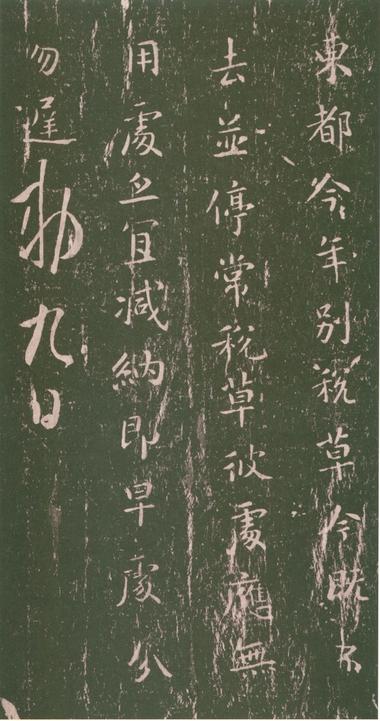 東都今年別税草今既不
去並停常税草彼處應無
用處宜減納即早處分
勿遲勅九日